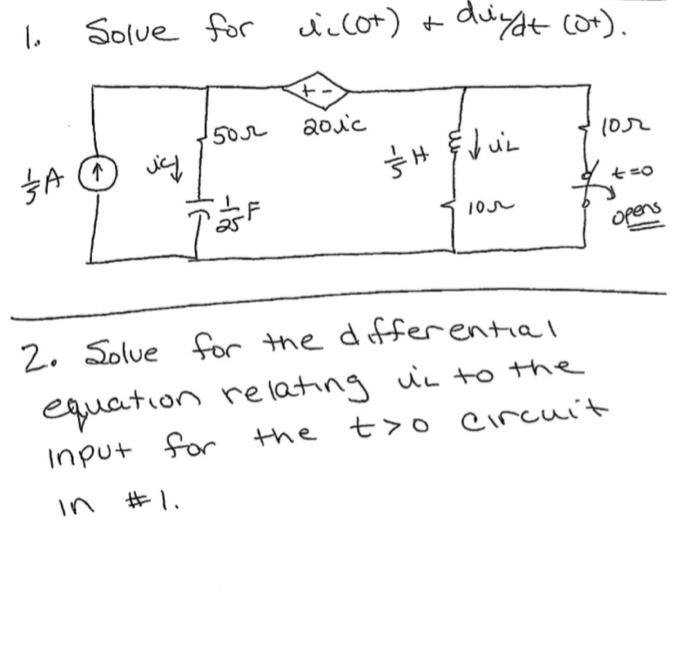 1. Solve for ic(0+) + diL/dt (0+).
+ -
50Ω 20ic 10Ω
1/3 A ic 1/5 H iL t=0
1/25 F 10Ω opens
2. Solve for the differential
equation relating iL to the
input for the t>0 circuit
in #1.